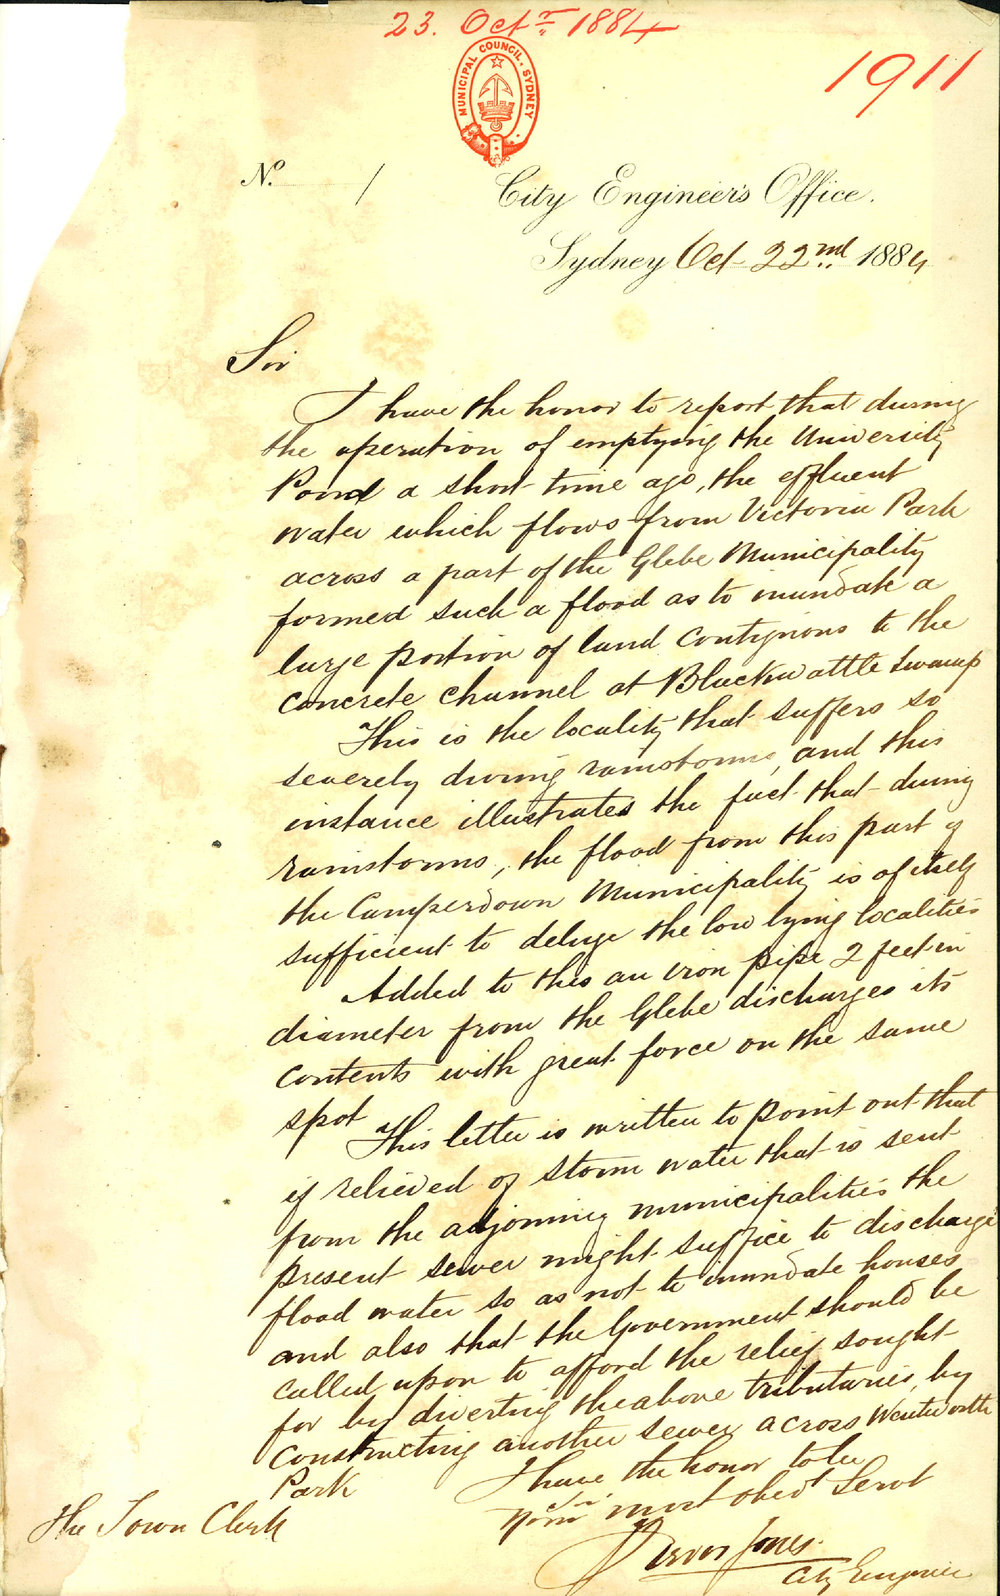 23. Octr 1884
MUNICIPAL COUNCIL. SYDNEY
1911
No. /
City Engineer's Office.
Sydney Oct 22nd 1884
Sir
I have the honor to report that during
the operation of emptying the University
Pond a short time ago, the effluent
water which flows from Victoria Park
across a part of the Glebe Municipality
formed such a flood as to inundate a
large portion of land contiguous to the
concrete channel at Blackwattle Swamp
This is the locality that suffers so
severely during rainstorms, and this
instance illustrates the fact that during
rainstorms, the flood from this part of
the Camperdown Municipality is of itself
sufficient to deluge the low lying localities
Added to this an iron pipe 2 feet in
diameter from the Glebe discharges its
contents with great force on the same
spot
This letter is written to point out that
if relieved of storm water that is sent
from the adjoining municipalities the
present sewer might suffice to discharge
flood water so as not to inundate houses
and also that the Government should be
called upon to afford the relief sought
for by diverting the above tributaries, by
constructing another sewer across Wentworth
Park
I have the honor to be
Your most obedt Servt
Trevor Jones
City Engineer
The Town Clerk